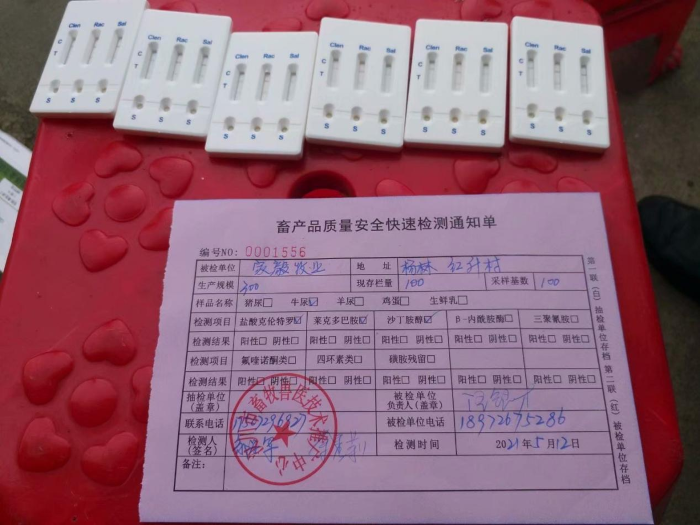 Clen Rac Sal
C
T
S S S
Clen Rac Sal
C
T
S S S
Clen Rac Sal
C
T
S S S
Clen Rac Sal
C
T
S S S
Clen Rac Sal
C
T
S S S
Clen Rac Sal
C
T
S S S
畜产品质量安全快速检测通知单
编号NO: 0001556
被检单位 牧业 地址 杨林 红升村
生产规模 300 现存栏量 100 采样基数 100
样品名称 猪尿□ 牛尿☑ 羊尿□ 鸡蛋□ 生鲜乳□
检测项目 盐酸克伦特罗☑ 莱克多巴胺☑ 沙丁胺醇☑ β-内酰胺酶□ 三聚氰胺□
检测结果 阳性□ 阴性□ 阳性□ 阴性□ 阳性□ 阴性□ 阳性□ 阴性□ 阳性□ 阴性□
检测项目 氟喹诺酮类□ 四环素类□ 磺胺残留□
检测结果 阳性□ 阴性□ 阳性□ 阴性□ 阳性□ 阴性□ 阳性□ 阴性□ 阳性□ 阴性□
抽检单位(盖章) 被检单位负责人(盖章)
联系电话 被检单位电话 18972675286
检测人(签名) 检测时间 2021年5月12日
备注:
畜牧兽医技术推广中心
第一联(白)抽检单位存档 第二联(红)被检单位存档